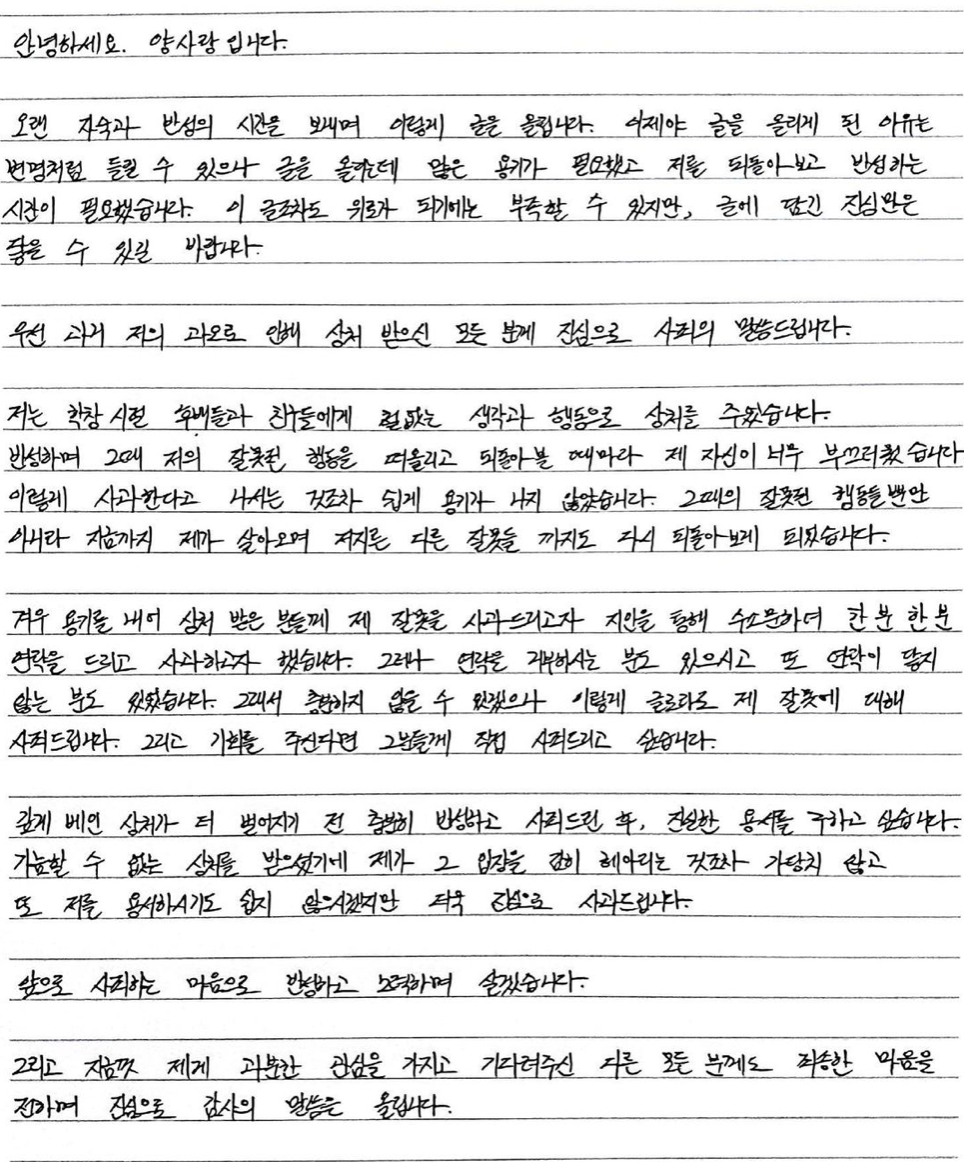 안녕하세요. 양사랑 입니다.
오랜 자숙과 반성의 시간을 보내며 이렇게 글을 올립니다. 이제야 글을 올리게 된 이유는
변명처럼 들릴 수 있으나 글을 올리는데 많은 용기가 필요했고 저를 되돌아보고 반성하는
시간이 필요했습니다. 이 글조차도 위로가 되기에는 부족할 수 있지만, 글에 담긴 진심만은
닿을 수 있길 바랍니다.
우선 과거 저의 과오로 인해 상처 받으신 모든 분께 진심으로 사죄의 말씀드립니다.
저는 학창시절 후배들과 친구들에게 철없는 생각과 행동으로 상처를 주었습니다.
반성하며 그때 저의 잘못된 행동을 떠올리고 되돌아볼 때마다 제 자신이 너무 부끄러웠습니다
이렇게 사과한다고 나서는 것조차 쉽게 용기가 나지 않았습니다. 그때의 잘못된 행동들뿐만
아니라 지금까지 제가 살아오며 저지른 다른 잘못들 까지도 다시 되돌아보게 되었습니다.
겨우 용기를 내어 상처 받은 분들께 제 잘못을 사과드리고자 지인을 통해 수소문하여 한분 한분
연락을 드리고 사과하고자 했습니다. 그러나 연락을 거부하시는 분도 있으시고 또 연락이 닿지
않는 분도 있었습니다. 그래서 충분하지 않을 수 있겠으나 이렇게 글로라도 제 잘못에 대해
사죄드립니다. 그리고 기회를 주신다면 그분들께 직접 사죄드리고 싶습니다.
깊게 베인 상처가 더 벌어지기 전 충분히 반성하고 사죄드린 후, 진실한 용서를 구하고 싶습니다.
가늠할 수 없는 상처를 받으셨기에 제가 그 입장을 감히 헤아리는 것조차 가당치 않고
또 저를 용서하시기도 쉽지 않으시겠지만 더욱 진심으로 사과드립니다.
앞으로 사죄하는 마음으로 반성하고 노력하며 살겠습니다.
그리고 지금껏 제게 과분한 관심을 가지고 기다려주신 다른 모든 분께도 죄송한 마음을
전하며 진심으로 감사의 말씀을 올립니다.